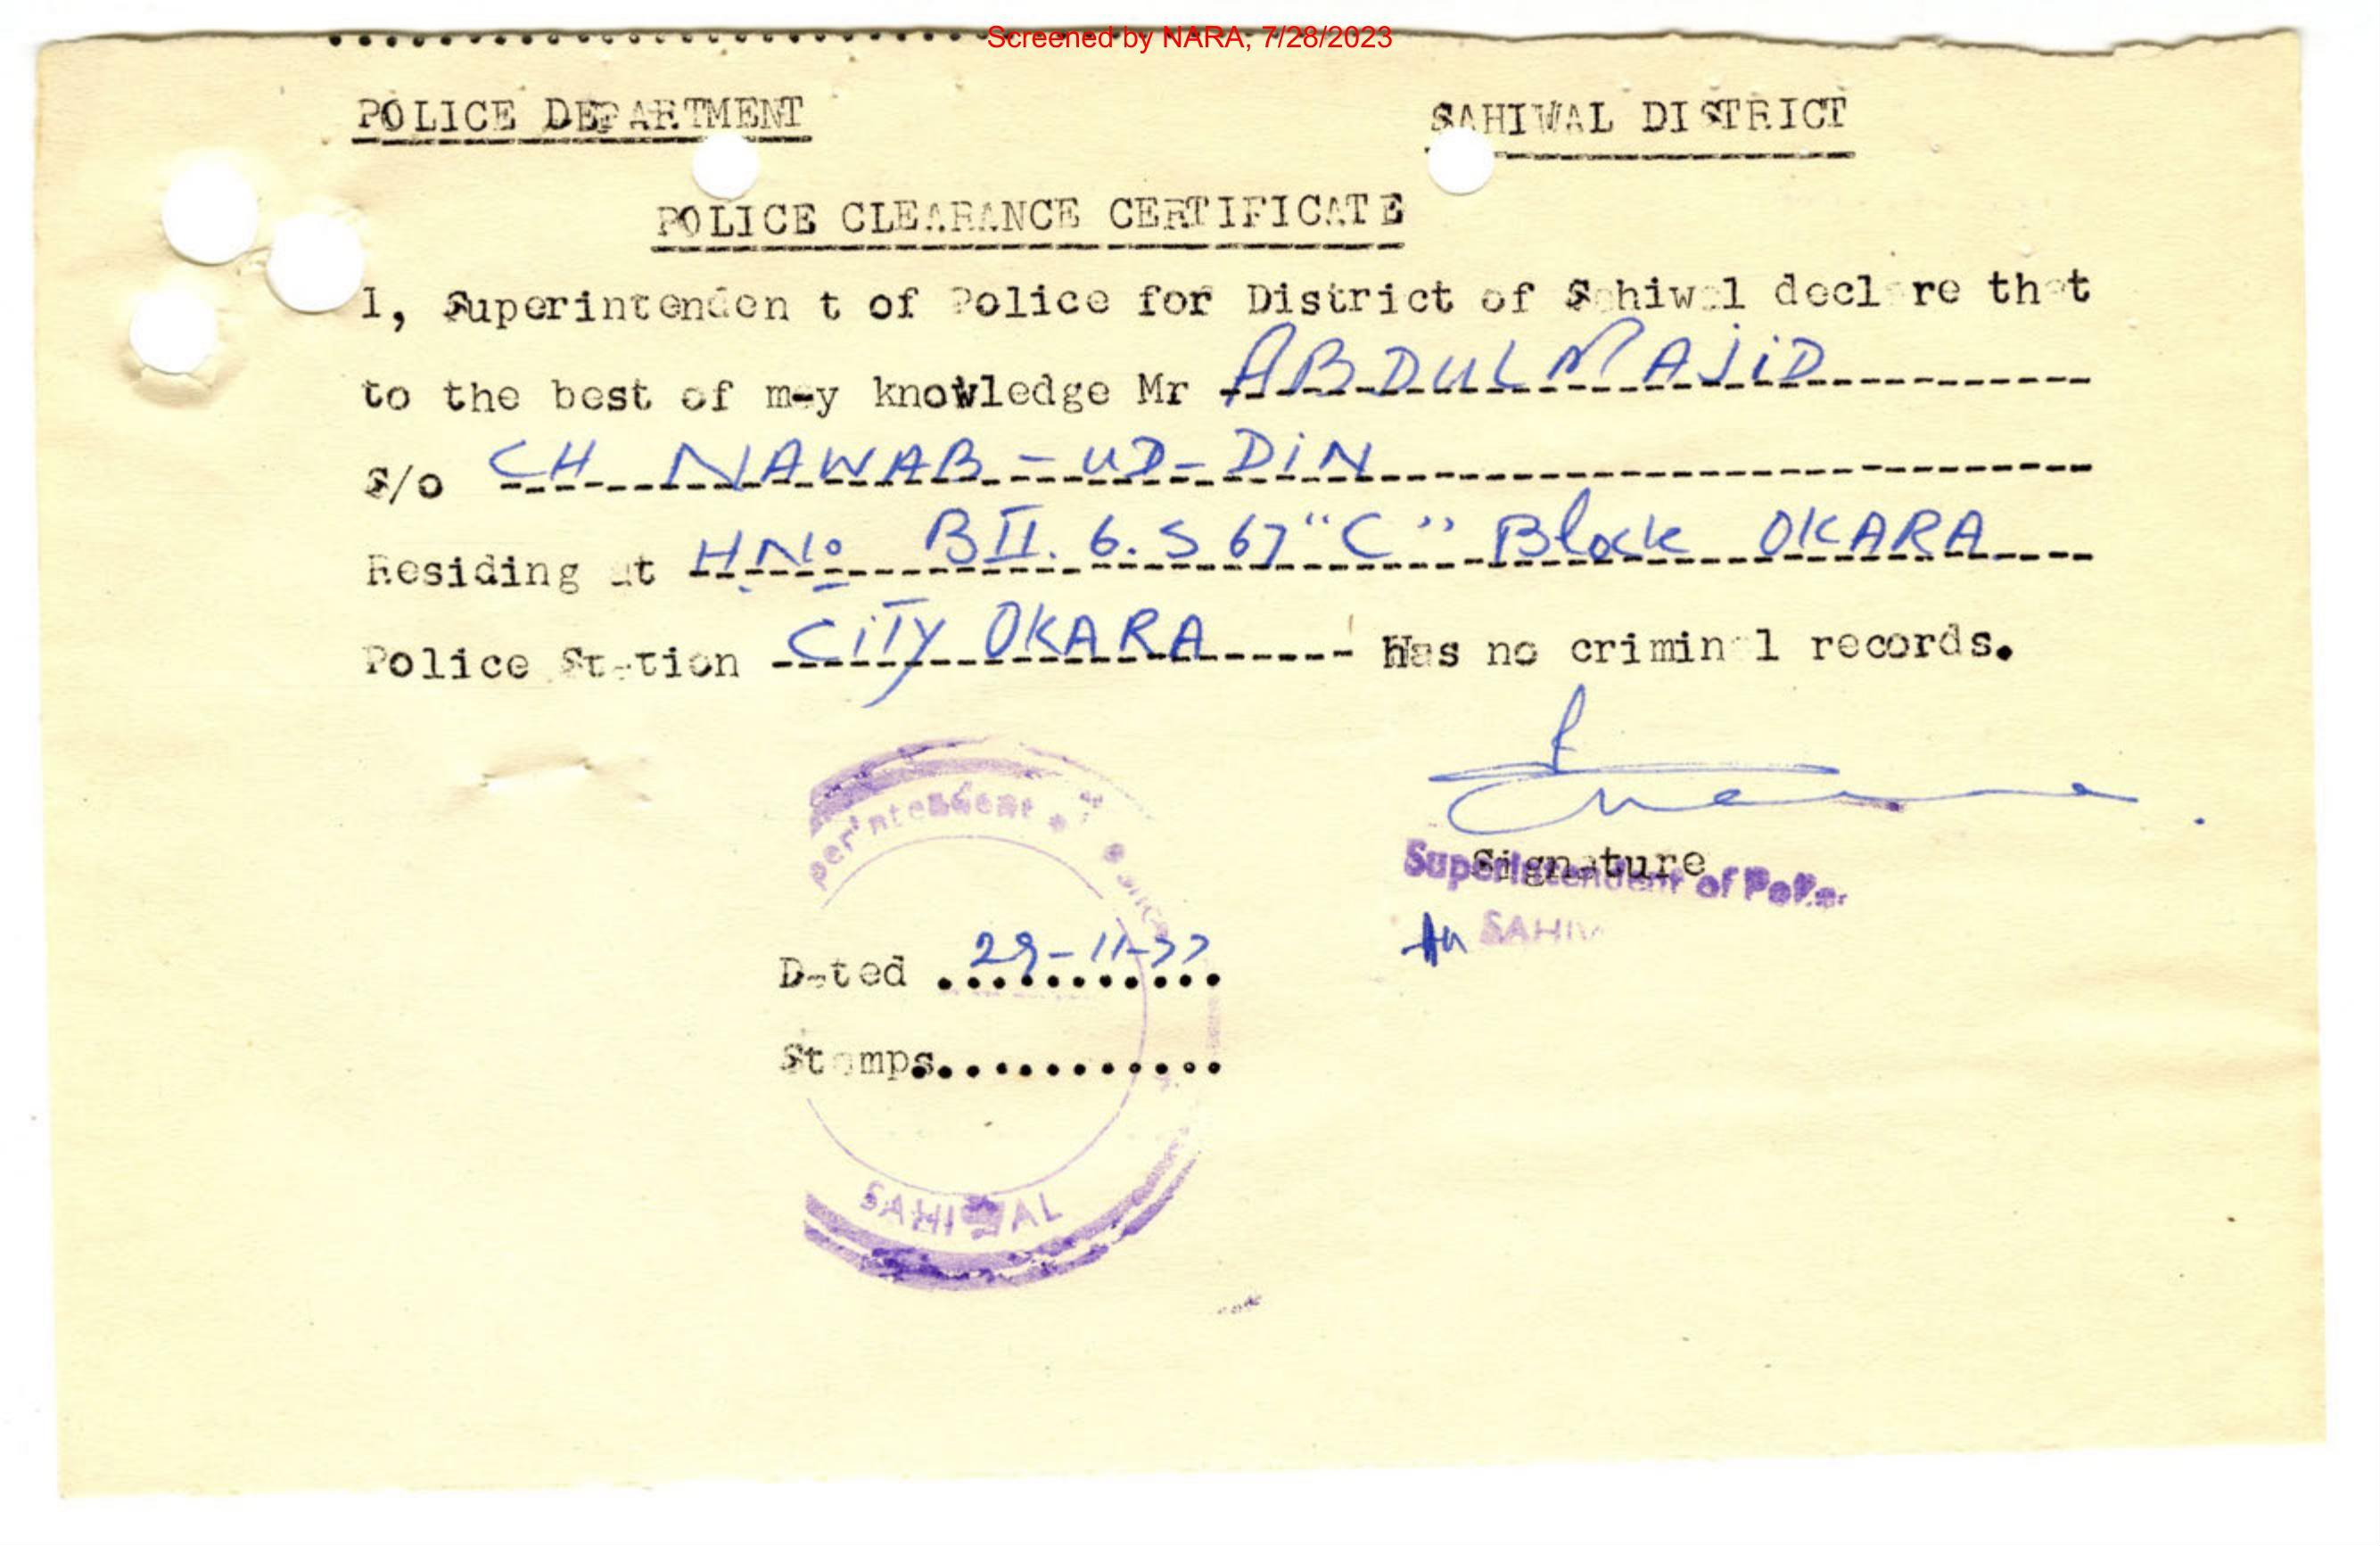 Screened by NARA, 7/28/2023
POLICE DEPARTMENT SAHIWAL DISTRICT
POLICE CLEARANCE CERTIFICATE
I, Superintenden t of Police for District of Sahiwal declare that
to the best of may knowledge Mr ABDUL MAJID
S/o CH NAWAB-UD-DIN
Residing at HNo BII. 6. S 67 "C" Block OKARA
Police Station CITY OKARA Has no criminal records.
perintendent of Police
Signature
Superintendent of Police
SAHIW
Dated 29-11-77
Stamps
SAHIWAL